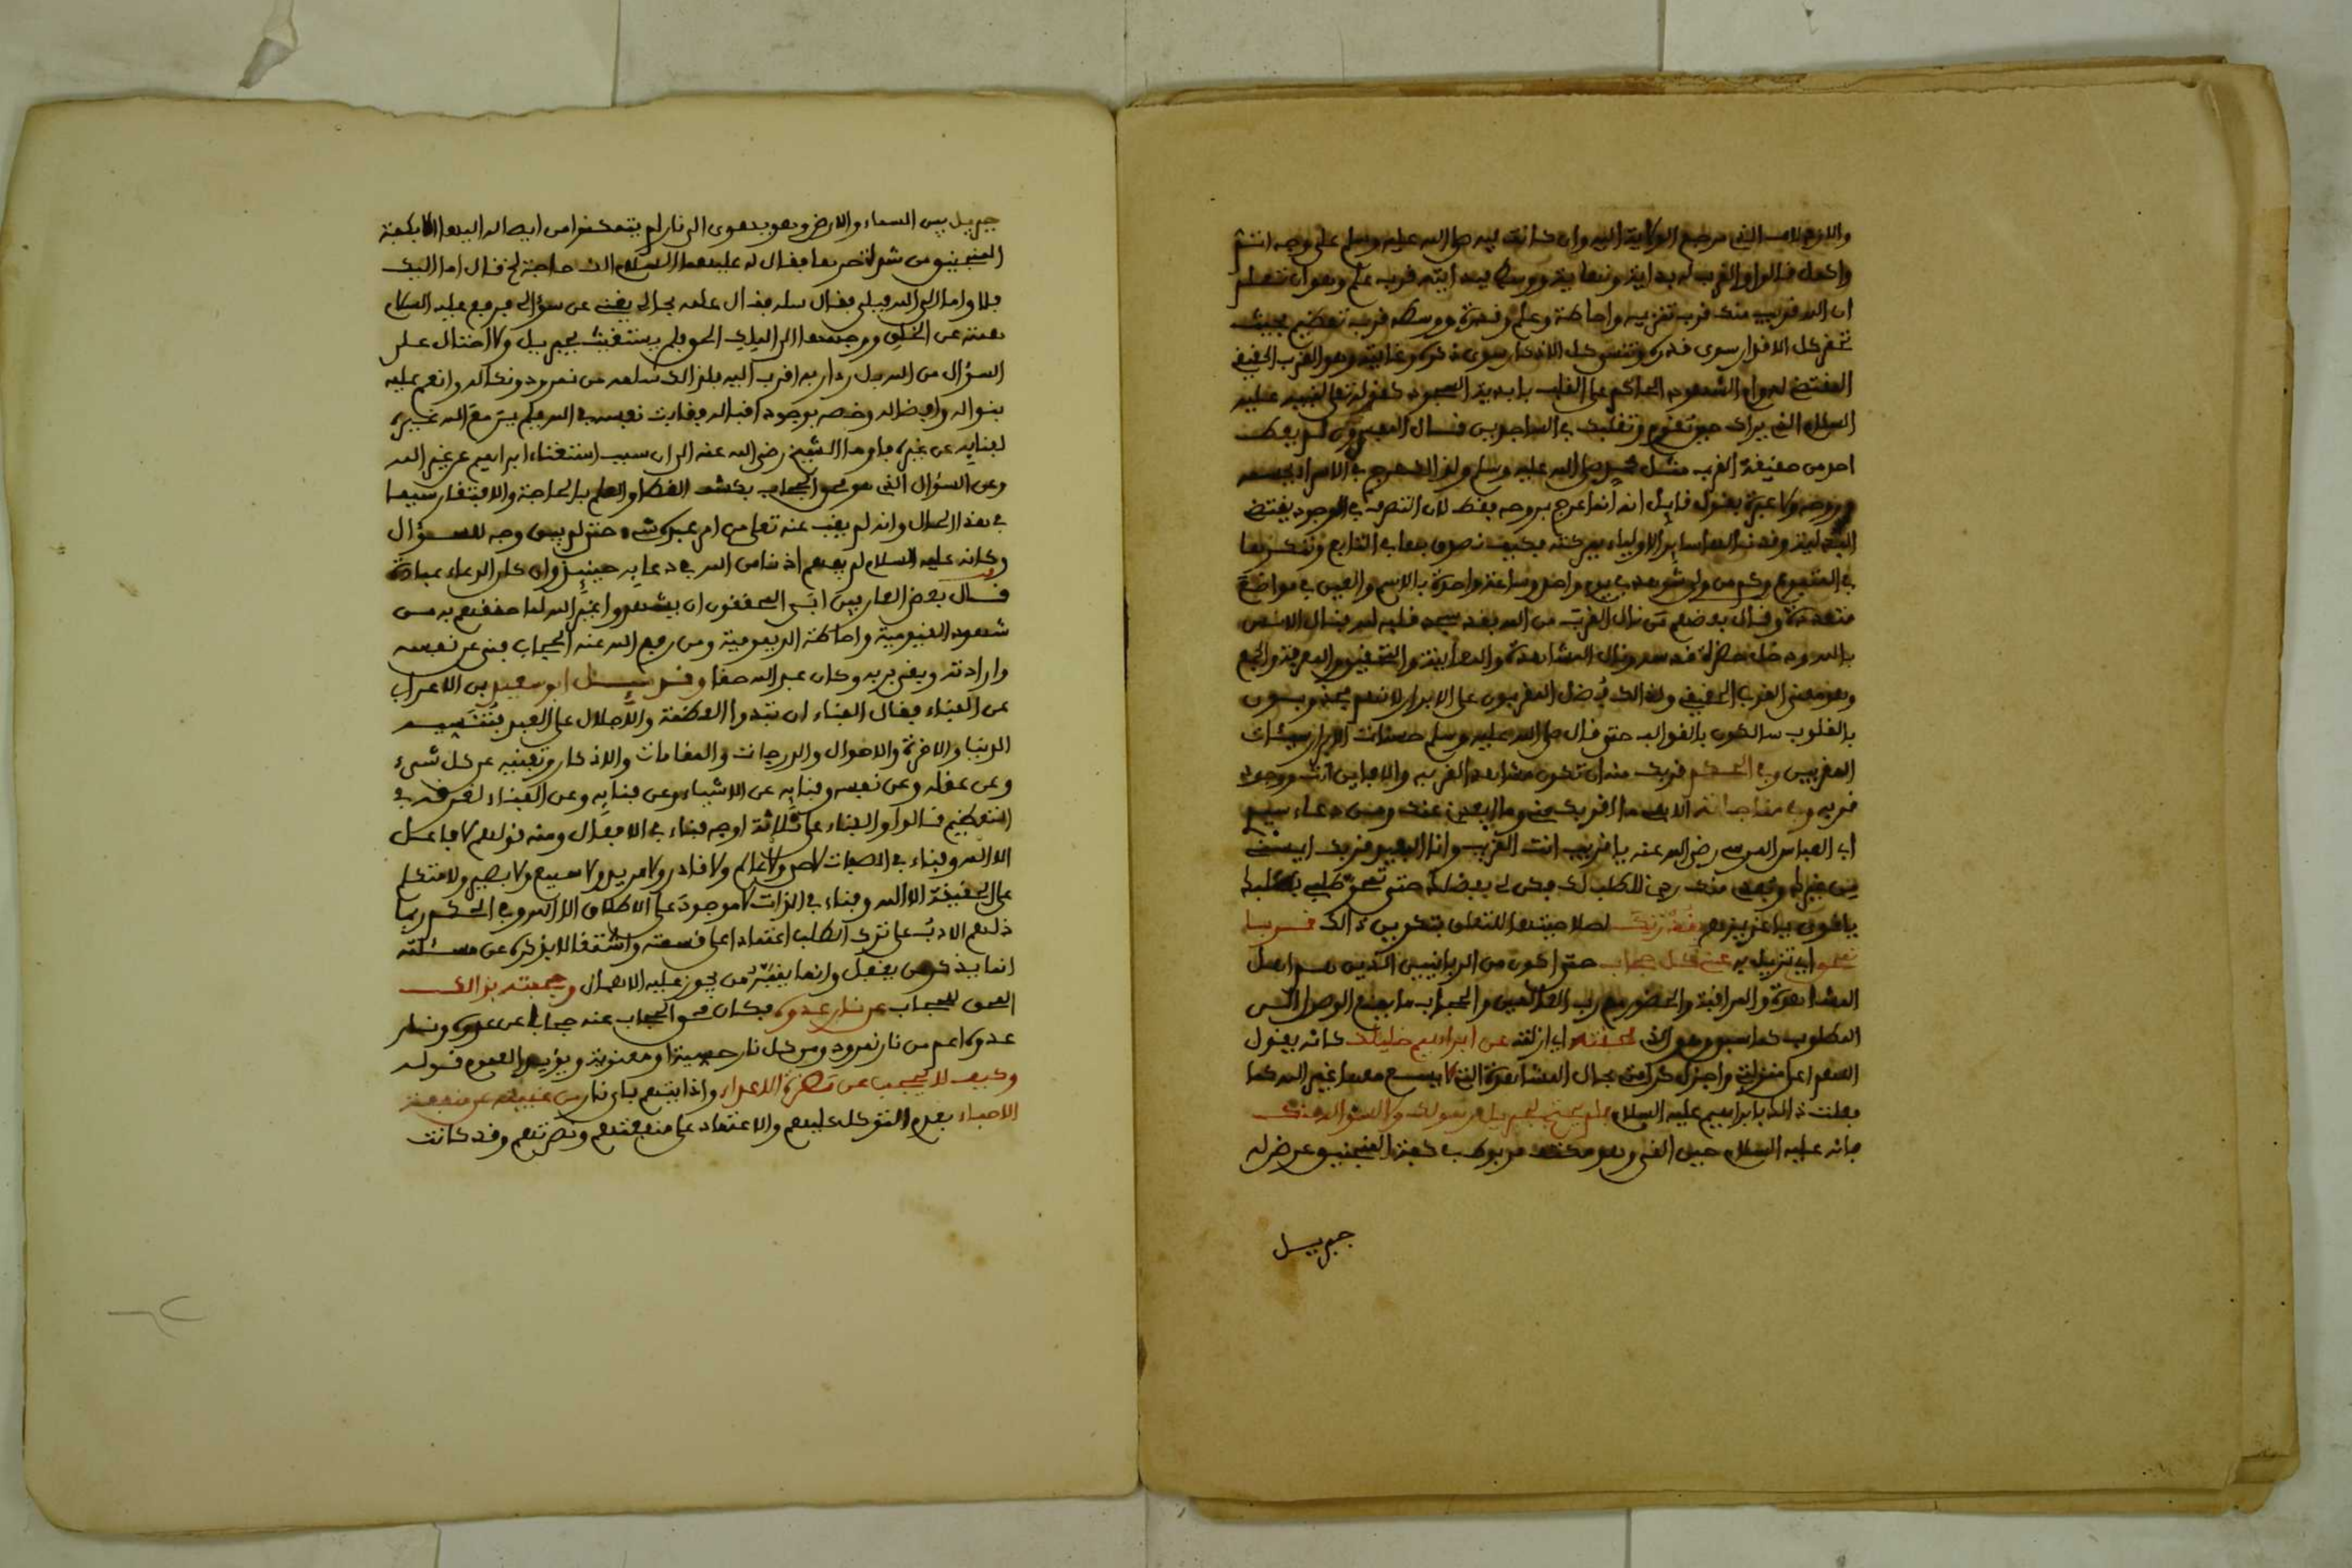 والارث لامر الذي مرجع الولاية اليه وان كانت فيه صلى الله عليه وسلم على وجه اتم
واكمل قالوا والقرب له بداية ونهاية ووسط فبدايته قرب علم وهو ان تعلم
ان الله قريب منك قرب تنزيه واحاطة وعلم وقدرة ووسطه قرب تعظيم بحيث
تحقر كل الاقدار سوى قدره وتنسى كل الاذكار سوى ذكره وغايته وهو القرب الحقيقي
المقتضي لدوام الشهود الحاكم على القلب بابدية السجود كقوله تعلى لنبيه عليه
السلام الذي يراك حين تقوم وتقلبك في الساجدين قال المعبرون لم يعط
احد من حقيقة القرب مثل نبينا صلى الله عليه وسلم ولذا عرج في الاسرا بجسمه
وروحه ولا عبرة بقول قايل انه انما عرج بروحه فقط لان التصرف في الوجود يقتضي
البدلية وقد نالها ساير الاولياء ببركته فكيف نصدق بها في التابع وننكرها
في المتبوع وكم من ولي شوهد في يوم واحد وساعة واحدة بالاسم والعين في مواضع
متعددة وقال بعضهم من نال القرب من الله فقد سجد قلبه لله فنال الانس
بالله ودخل حضرة قدسه ونال المشاهدة والمعاينة والتحقيق والمعرفة والجمع
وهو معنى القرب الحقيقي ولذالك فُضل المقربون على الابرار لانهم مجذوبون
بالقلوب سالكون بالقوالب حتى قال صلى الله عليه وسلم حسنات الابرار سيئات
المقربين وفي الحكم قربك منه ان تكون مشاهدا لقربه والا فاين انت ووجود
قربه وفي مناجاته الاهي ما اقربك مني وما ابعدني عنك ومن دعاء سيدي
ابي العباس المرسي رضي الله عنه يا قريب انت القريب وانا البعيد قربك ايسني
من غيرك وبعدي منك ردني للطلب لك فكن لي بفضلك حتى تمحو طلبي بطلبك
يا قوي يا عزيز بقُدْرَتِكَ لصلاحيتها للتعلق بتكوين ذالك قربا
تمحو اي تزيل به عني كل حجاب حتى اكون من الربانيين الذين هم اهل
المشاهدة والمراقبة والحضور مع رب العالمين والحجاب ما يمنع الوصول الى
المطلوب كما سبق وهو الذي محقته اي ازلته عن ابراهيم خليلك كانه يقول
اللهم اعل منزلتي واجزل كرامتي بحال المشاهدة التي لا يسع معها غير الله كما
فعلت ذالك بابراهيم عليه السلام فلم يحتج لجبريل رسولك ولا لسؤاله منك
فانه عليه السلام حين القي وهو مكتف مربوط في كفة المنجنيق عرض له
جبريل
جبريل بين السماء والارض وهو يهوي الى نار لم يتمكنوا من ايصاله اليها الا بكفة
المنجنيق من شدة حرها فقال له عليهما السلام الك حاجة لي فقال اما اليك
فلا واما الى الله فبلى فقال سله فقال علمه بحالي يغني عن سؤالي فرفع عليه السلام
همته عن الخلق ووجهها الى الملك الحق فلم يستغث بجبريل ولا احتال على
السؤال من الله بل رءا ربه اقرب اليه فلذالك سلمه من نمرود ونكاله وانعم عليه
بنواله وافضاله وخصه بوجود اقباله وغابت نفسه في الله فلم ير مع الله غيره
لفنايه عن غيره فاومأ الشيخ رضي الله عنه الى ان سبب استغناء ابراهيم عن غير الله
وعن السؤال الذي هو محو الحجاب بكشف الغطا والعلم بالحاجة والافتقار سيما
في هذا الحال وانه لم يغب عنه تعلى من امر عبده شيء حتى لم يبق وجه للسؤال
وكانه عليه السلام لم يفهم اذنا من الله في دعايه حينيذ وان كان الدعاء عبادة
قال بعض العارفين ابى المحققون ان يشهدوا غير الله لما حققهم به من
شهود القيومية واحاطة الديمومية ومن رفع الله عنه الحجاب فني عن نفسه
وارادته وبقي بربه وكان عبد الله حقا وقد سيل ابو سعيد بن الاعرابي
عن الفناء فقال الفناء ان تبدوا العظمة والاجلال على العبد فتُنسيه
الدنيا والاخرة والاحوال والدرجات والمقامات والاذكار وتفنيه عن كل شيء
وعن عقله وعن نفسه وفنايه عن الاشياء وعن فنايه وعن الفناء لغرقه في
التعظيم قالوا والفناء على ثلاثة اوجه فناء في الافعال ومنه قولهم لا فاعل
الا الله وفناء في الصفات لا حي ولا عالم ولا قادر ولا مريد ولا سميع ولا بصير ولا متكلم
على الحقيقة الا الله وفناء في الذات لا موجود على الاطلاق الا الله وفي الحكم ربما
دلهم الادبُ على ترك الطلب اعتمادا على قسمته واشتغالا بذكره عن مسئلته
انما يذكر من يغفل وانما ينبه من يجوز عليه الاهمال وحجبته بذالك
المحق للحجاب عن نار عدوه فكان محو الحجاب عنه حجابا عن عدوه ونار
عدوه اعم من نار نمرود ومن كل نار حسية او معنوية ويؤيد العموم قوله
وكيف لا يحجب عن مضرة الاعداء واذايتهم باي نار من غيبته عن منفعة
الاحباء بعدم التوكل عليهم والاعتماد على منفعتهم ونصرتهم وقد كانت